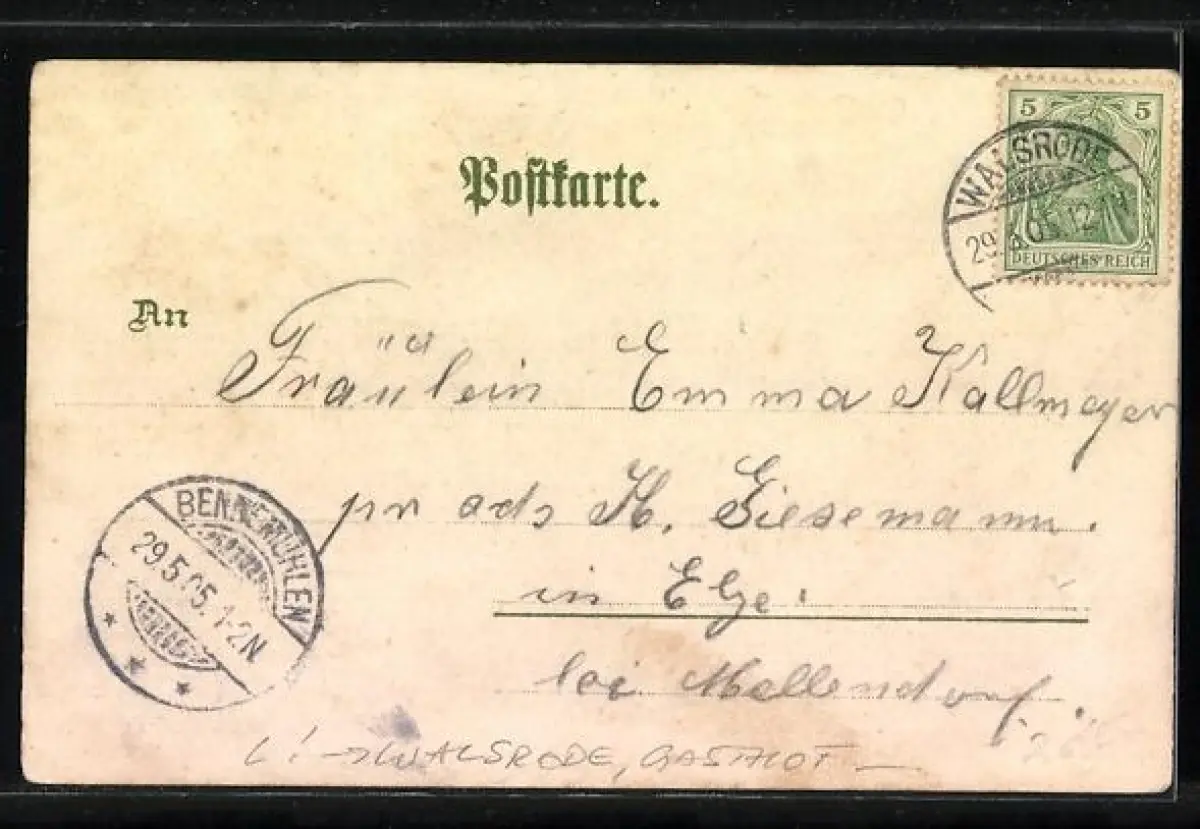 5 5
WALSRODE
29.5.05.12-
DEUTSCHES REICH
Postkarte.
An
Fräulein Emma Kallmeyer
pr ads H. Giesemann.
in Elze.
bei Mellendorf.
BENNEMÜHLEN
29.5.05.1-2N
WALSRODE, GASTHOF